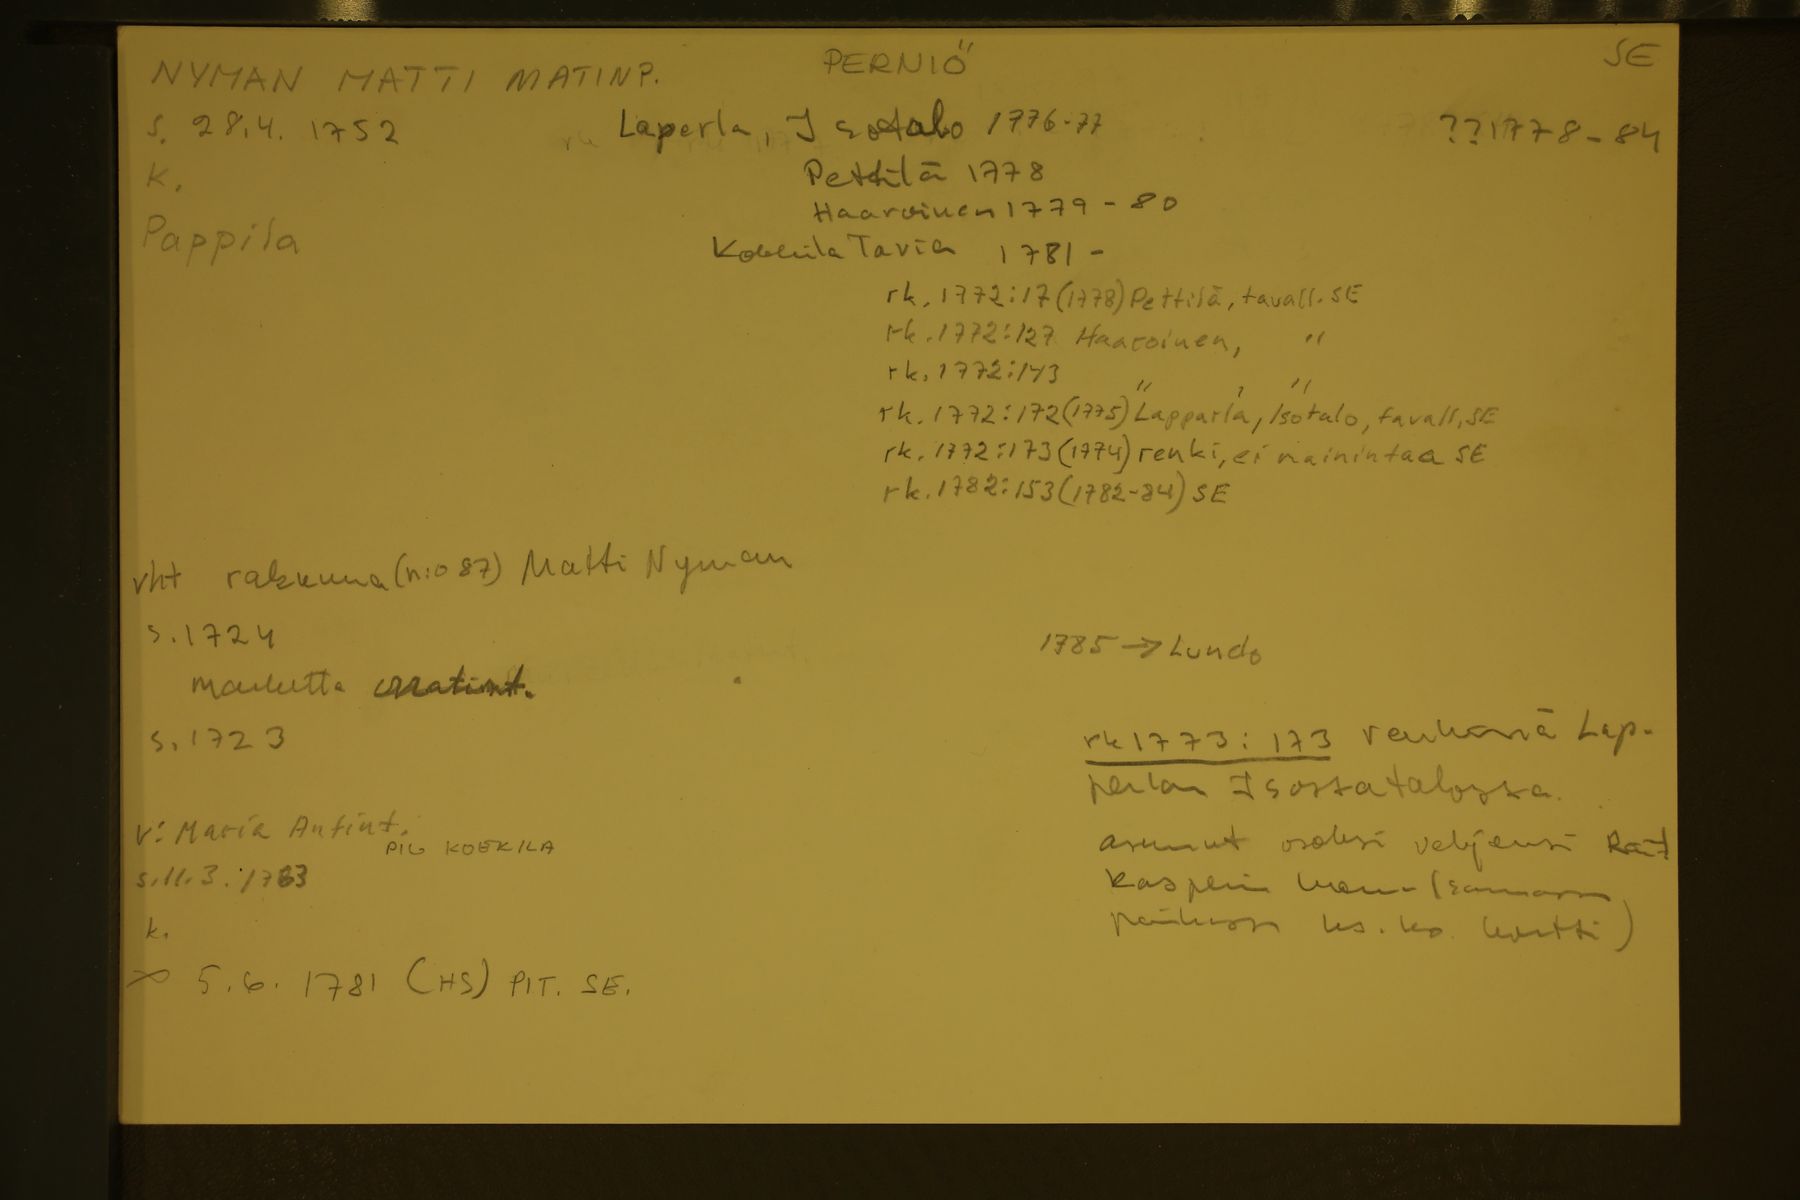 NYMAN MATTI MATINP. PERNIÖ SE
s. 28.4. 1752 Laperla, Isotalo 1776-77 ??1778-84
k. Pettilä 1778
Haaroinen 1779-80
Pappila Kokkila Tavia 1781-
rk. 1772:17(1778) Pettilä, tavall. SE
rk. 1772:127 Haaroinen, "
rk. 1772:143 " , "
rk. 1772:172(1775) Lapparla, Isotalo, tavall. SE
rk. 1772:173(1774) renki, ei mainintaa SE
rk. 1782:153(1782-84) SE
vht rakuuna (n:o 87) Matti Nyman
s. 1724
1785 → Lundo
Marketta Matint.
s. 1723
rk 1773: 173 renkinä Lap-
perlan Isossatalossa.
v: Maria Antint.
PIG KOEKILA
asunut osaksi veljensä
s. 11.3. 1763
Kasperin (samassa
k.
ks. ko. kortti)
∞ 5.6. 1781 (HS) PIT. SE.